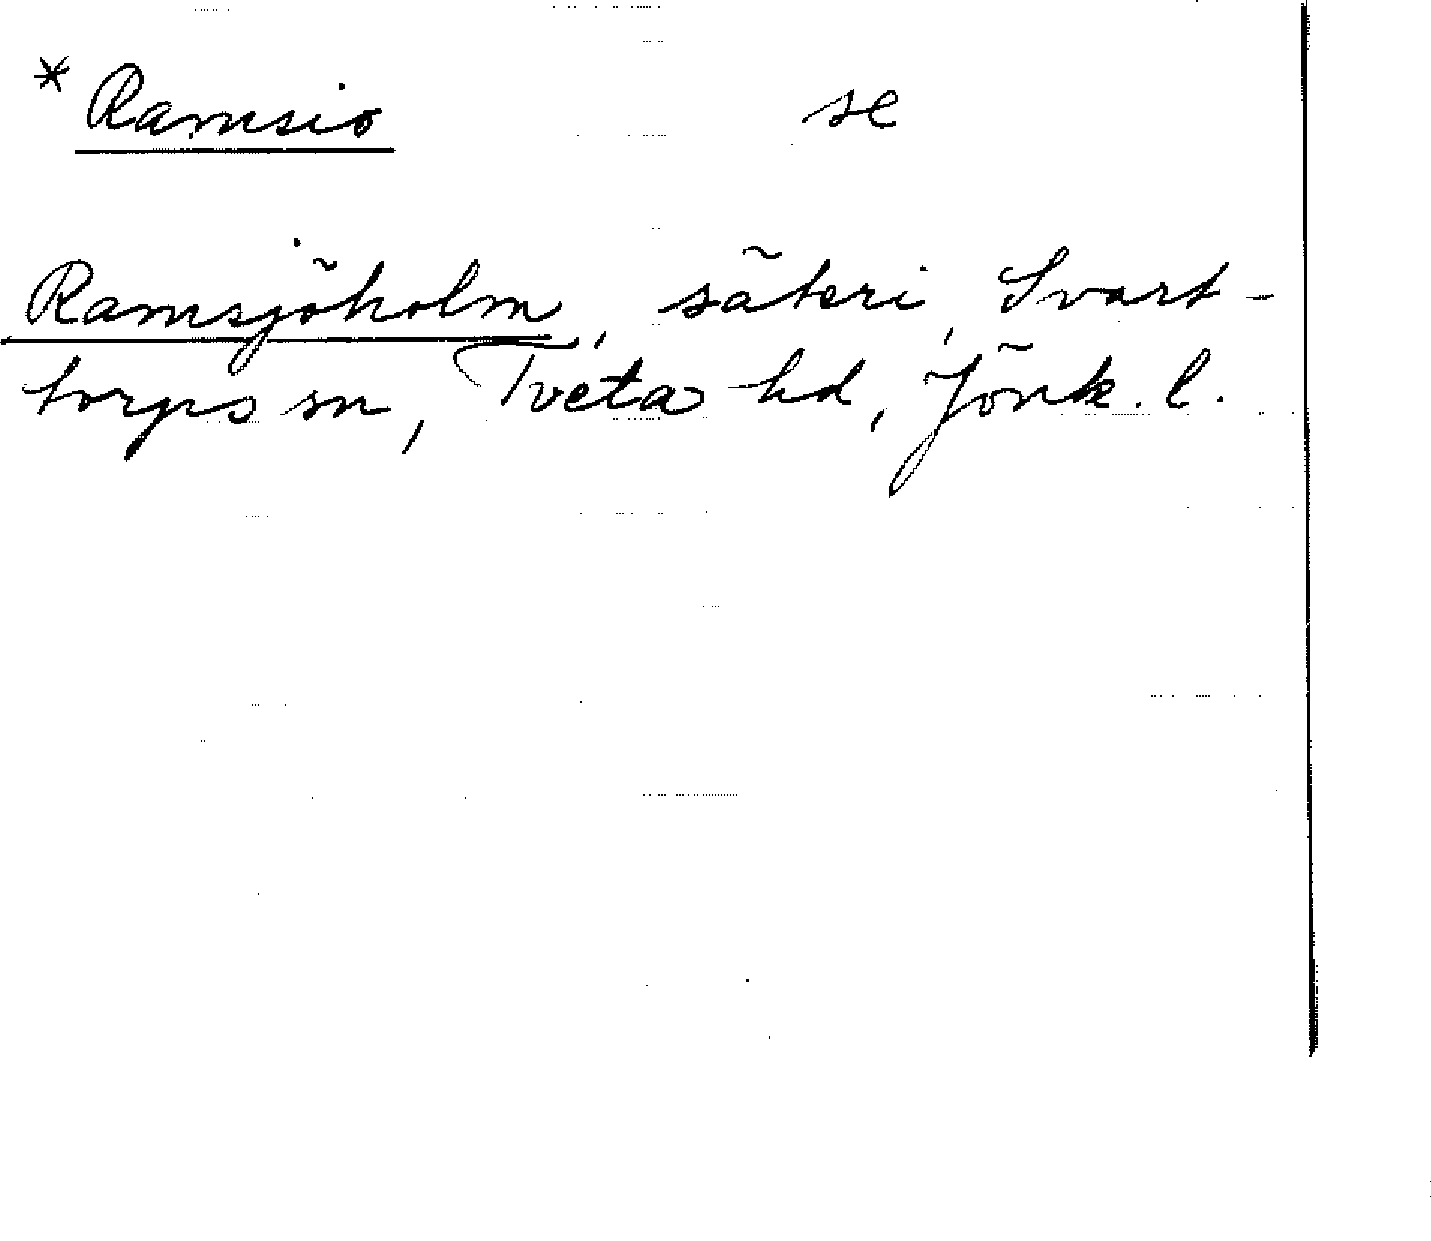 * Ramsio se
Ramsjöholm, säteri, Svart-
torps sn, Tveta hd, Jönk. l.